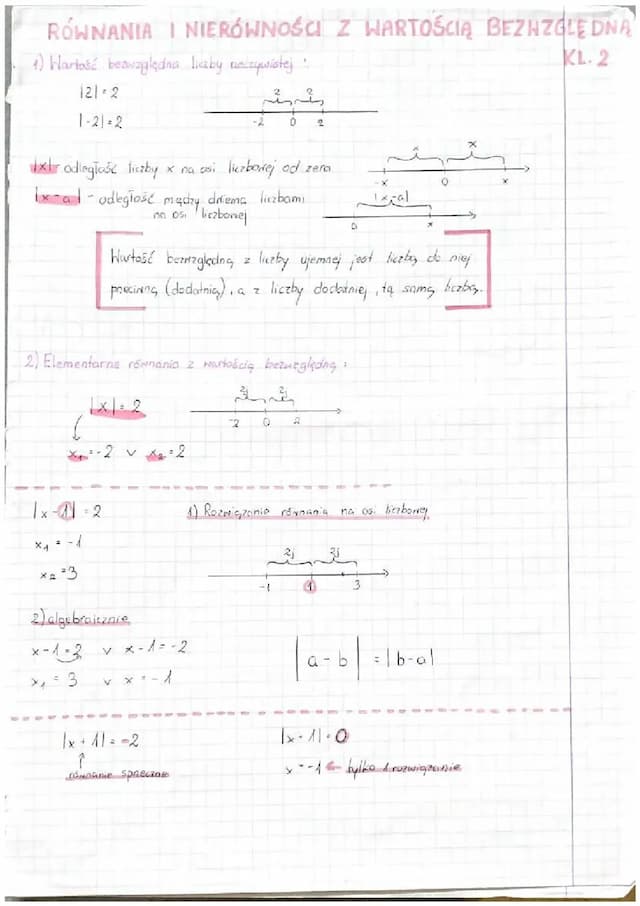 RÓWNANIA I NIERÓWNOŚCI Z WARTOŚCIĄ BEZWZGLĘDNĄ
KL. 2
1) Wartość bezwzględna liczby rzeczywistej :
|2| = 2
2 2
-2 0 2
|-2| = 2
|x| - odległość liczby x na osi liczbowej od zera
x x
-x 0 x
|x-a| - odległość między dwiema liczbami
na osi liczbowej
|x-a|
a x
Wartość bezwzględną z liczby ujemnej jest liczbą do niej
przeciwną (dodatnią), a z liczby dodatniej, tą samą liczbą.
2) Elementarne równania z wartością bezwzględną :
|x| = 2
2j 2j
-2 0 2
x₁ = -2 v x₂ = 2
|x-1| = 2
1) Rozwiązanie równania na osi liczbowej
x₁ = -1
x₂ = 3
2j 2j
-1 1 3
2) algebraicznie
x-1=2 v x-1=-2
x₁ = 3 v x = -1
|a-b| = |b-a|
|x+1| = -2
równanie sprzeczne
|x-1| = 0
x = -1 ← tylko 1 rozwiązanie